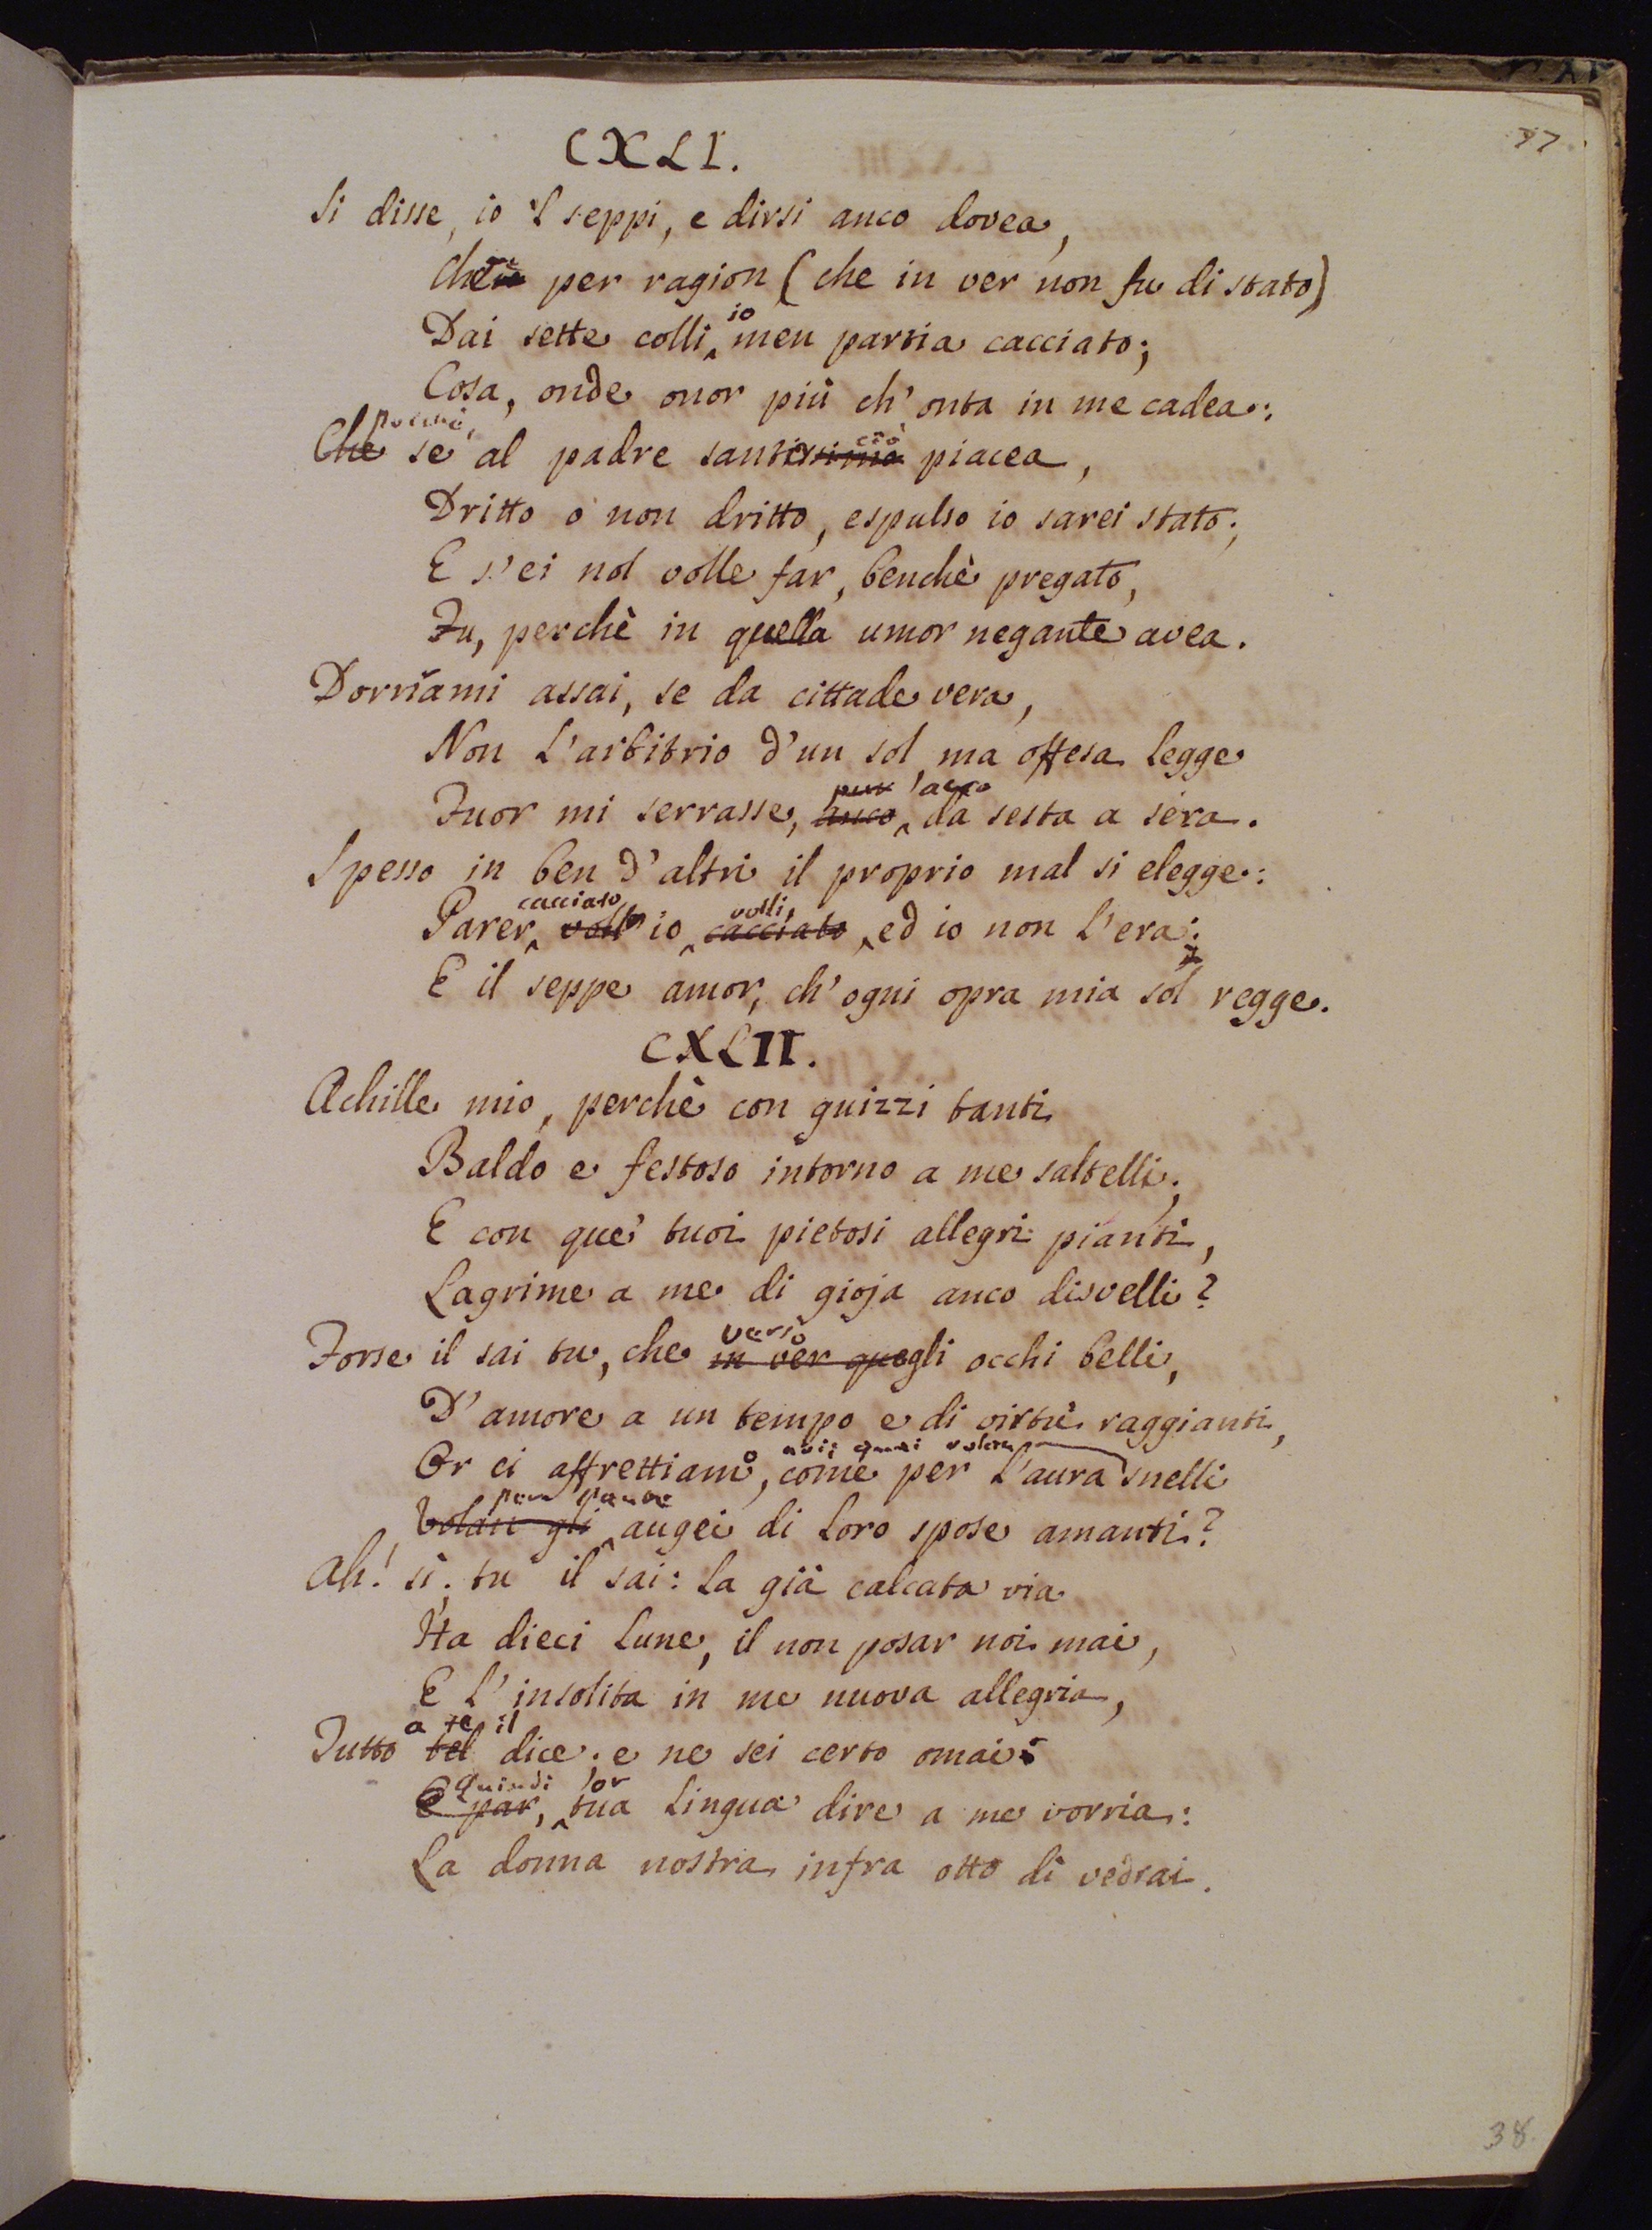 37
CXLI.
Si disse, io 'l seppi, e dirsi anco dovea,
Che per ragion (che in ver non fu di stato)
io
Dai sette colli, men partia cacciato;
Cosa, onde onor più ch'onta in me cadea:
Poichè, ciò
Che se al padre santissimo piacea,
Dritto o non dritto, espulso io sarei stato;
E s'ei nol volle far, benchè pregato,
Fu, perchè in quella umor negante avea.
Dorriami assai, se da cittade vera,
Non l'arbitrio d'un sol, ma offesa legge
pur
Fuor mi serrasse, anco da sesta a sera.
Spesso in ben d'altri il proprio mal si elegge:
cacciato volli,
Parer voll'io cacciato, ed io non l'era:
E il seppe amor, ch'ogni opra mia sol regge.
CXLII.
Achille mio, perchè con guizzi tanti
Baldo e festoso intorno a me saltelli;
E con que' tuoi pietosi allegri pianti,
Lagrime a me di gioja anco disvelli?
verso
Forse il sai tu, che in ver quegli occhi belli,
D'amore a un tempo e di virtù raggianti,
quai volan
Or ci affrettiamo, come per l'aura snelli
per
Volan gli augei di loro spose amanti?
Ah! sì; tu il sai: la già calcata via
Ha dieci lune, il non posar noi mai,
E l'insolita in me nuova allegria,
a te il
Tutto tel dice; e ne sei certo omai:
Quindi or
E par, tua lingua dire a me vorria:
La donna nostra infra otto dì vedrai.
38